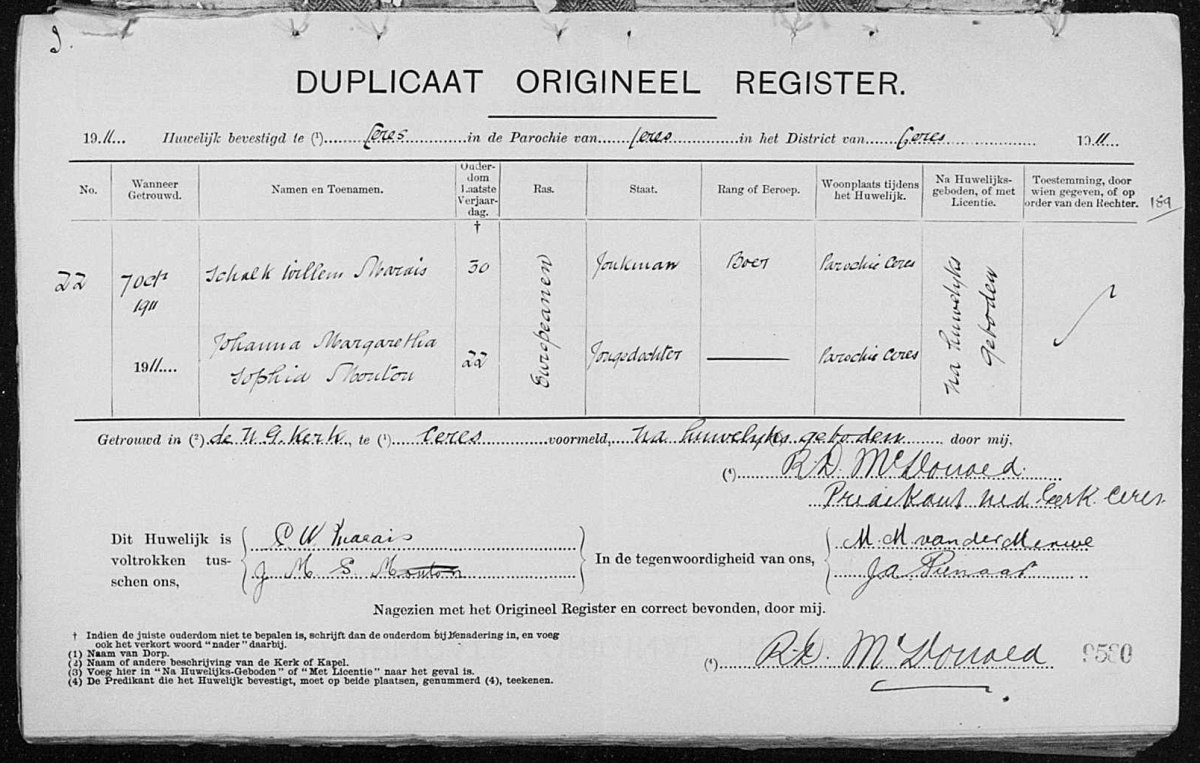 DUPLICAAT ORIGINEEL REGISTER.
19 11.... Huwelijk bevestigd te (¹)......Ceres............in de Parochie van......Ceres............in het District van......Ceres............ 19 11.....
No.
Wanneer Getrouwd.
Namen en Toenamen.
Ouder-
dom
Laatste
Verjaar-
dag.
†
Ras.
Staat.
Rang of Beroep.
Woonplaats tijdens
het Huwelijk.
Na Huwelijks-
geboden, of met
Licentie.
Toestemming, door
wien gegeven, of op
order van den Rechter.
189
22
7 Oct
1911
Schalk Willem Marais
30
Europeanen
Jonkman
Boer
Parochie Ceres
Na huwelyks
geboden
1911....
Johanna Margaretha
Sophia Mouton
22
Jongedochter
Parochie Ceres
Getrouwd in (²) de N. G. Kerk, te (¹) Ceres voormeld, Na huwelyks geboden door mij,
(⁴) R D McDonald
Predikant Ned Gerk. Ceres
Dit Huwelijk is
voltrokken tus-
schen ons,
S W Marais
J M S Mouton
In de tegenwoordigheid van ons,
M. M. van der Merwe
J A Pienaar
Nagezien met het Origineel Register en correct bevonden, door mij.
† Indien de juiste ouderdom niet te bepalen is, schrijft dan de ouderdom bij benadering in, en voeg
ook het verkort woord "nader" daarbij.
(1) Naam van Dorp.
(2) Naam of andere beschrijving van de Kerk of Kapel.
(3) Voeg hier in "Na Huwelijks-Geboden" of "Met Licentie" naar het geval is.
(4) De Predikant die het Huwelijk bevestigt, moet op beide plaatsen, genummerd (4), teekenen.
(⁴) R. D. McDonald
9580